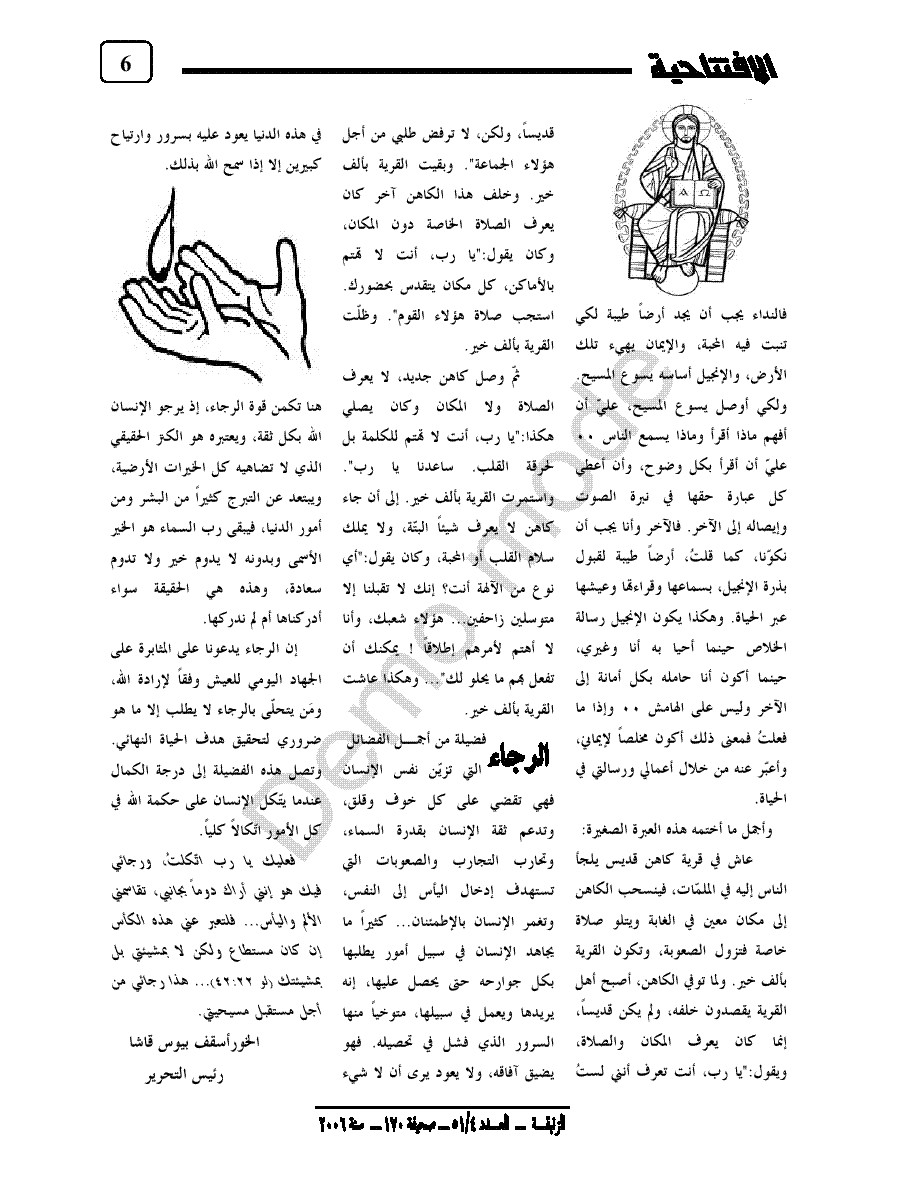 الافتتاحية
6
Α Ω
فالنداء يجب أن يجد أرضاً طيبة لكي
تنبت فيه المحبة، والإيمان يهيء تلك
الأرض، والإنجيل أساسه يسوع المسيح.
ولكي أوصل يسوع المسيح، عليّ أن
أفهم ماذا أقرأ وماذا يسمع الناس ..
عليّ أن أقرأ بكل وضوح، وأن أعطي
كل عبارة حقها في نبرة الصوت
وإيصاله إلى الآخر. فالآخر وأنا يجب أن
نكوّنا، كما قلتُ، أرضاً طيبة لقبول
بذرة الإنجيل، بسماعها وقراءتها وعيشها
عبر الحياة. وهكذا يكون الإنجيل رسالة
الخلاص حينما أحيا به أنا وغيري،
حينما أكون أنا حامله بكل أمانة إلى
الآخر وليس على الهامش .. وإذا ما
فعلتُ فمعنى ذلك أكون مخلصاً لإيماني،
وأعبّر عنه من خلال أعمالي ورسالتي في
الحياة.
وأجمل ما أختمه هذه العبرة الصغيرة:
عاش في قرية كاهن قديس يلجأ
الناس إليه في الملمّات، فينسحب الكاهن
إلى مكان معين في الغابة ويتلو صلاة
خاصة فتزول الصعوبة، وتكون القرية
بألف خير. ولما توفي الكاهن، أصبح أهل
القرية يقصدون خلفه، ولم يكن قديساً،
إنما كان يعرف المكان والصلاة،
ويقول:"يا رب، أنت تعرف أنني لستُ
قديساً، ولكن، لا ترفض طلبي من أجل
هؤلاء الجماعة". وبقيت القرية بألف
خير. وخلف هذا الكاهن آخر كان
يعرف الصلاة الخاصة دون المكان،
وكان يقول:"يا رب، أنت لا تهتم
بالأماكن، كل مكان يتقدس بحضورك.
استجب صلاة هؤلاء القوم". وظلّت
القرية بألف خير.
ثمّ وصل كاهن جديد، لا يعرف
الصلاة ولا المكان وكان يصلي
هكذا:"يا رب، أنت لا تهتم للكلمة بل
لحرقة القلب. ساعدنا يا رب".
واستمرت القرية بألف خير. إلى أن جاء
كاهن لا يعرف شيئاً البتّة، ولا يملك
سلام القلب أو المحبة، وكان يقول:"أي
نوع من الآلهة أنت؟ إنك لا تقبلنا إلا
متوسلين زاحفين... هؤلاء شعبك، وأنا
لا أهتم لأمرهم إطلاقاً ! يمكنك أن
تفعل بهم ما يحلو لك"... وهكذا عاشت
القرية بألف خير.
الرجاء فضيلة من أجمـــل الفضائل
التي تزيّن نفس الإنسان
فهي تقضي على كل خوف وقلق،
وتدعم ثقة الإنسان بقدرة السماء،
وتحارب التجارب والصعوبات التي
تستهدف إدخال اليأس إلى النفس،
وتغمر الإنسان بالإطمئنان... كثيراً ما
يجاهد الإنسان في سبيل أمور يطلبها
بكل جوارحه حتى يحصل عليها، إنه
يريدها ويعمل في سبيلها، متوخياً منها
السرور الذي فشل في تحصيله. فهو
يضيق آفاقه، ولا يعود يرى أن لا شيء
في هذه الدنيا يعود عليه بسرور وارتياح
كبيرين إلا إذا سمح الله بذلك.
هنا تكمن قوة الرجاء، إذ يرجو الإنسان
الله بكل ثقة، ويعتبره هو الكنز الحقيقي
الذي لا تضاهيه كل الخيرات الأرضية،
ويبتعد عن التبرج كثيراً من البشر ومن
أمور الدنيا، فيبقى رب السماء هو الخير
الأسمى وبدونه لا يدوم خير ولا تدوم
سعادة، وهذه هي الحقيقة سواء
أدركناها أم لم ندركها.
إن الرجاء يدعونا على المثابرة على
الجهاد اليومي للعيش وفقاً لإرادة الله،
ومَن يتحلّى بالرجاء لا يطلب إلا ما هو
ضروري لتحقيق هدف الحياة النهائي.
وتصل هذه الفضيلة إلى درجة الكمال
عندما يتّكل الإنسان على حكمة الله في
كل الأمور اتّكالاً كلياً.
فعليك يا رب اتّكلتُ، ورجائي
فيك هو إنني أراك دوماً بجانبي، تقاسمني
الألم واليأس... فلتعبر عني هذه الكأس
إن كان مستطاع ولكن لا بمشيئتي بل
بمشيئتك (لو ٤٢:٢٢)... هذا رجائي من
أجل مستقبل مسيحيتي.
الخورأسقف بيوس قاشا
رئيس التحرير
الزنبقـــة ــ العـــدد ٥١/٤ــ صحيفة ١٢٠ــ سنة ٢٠٠٦
Demo mode